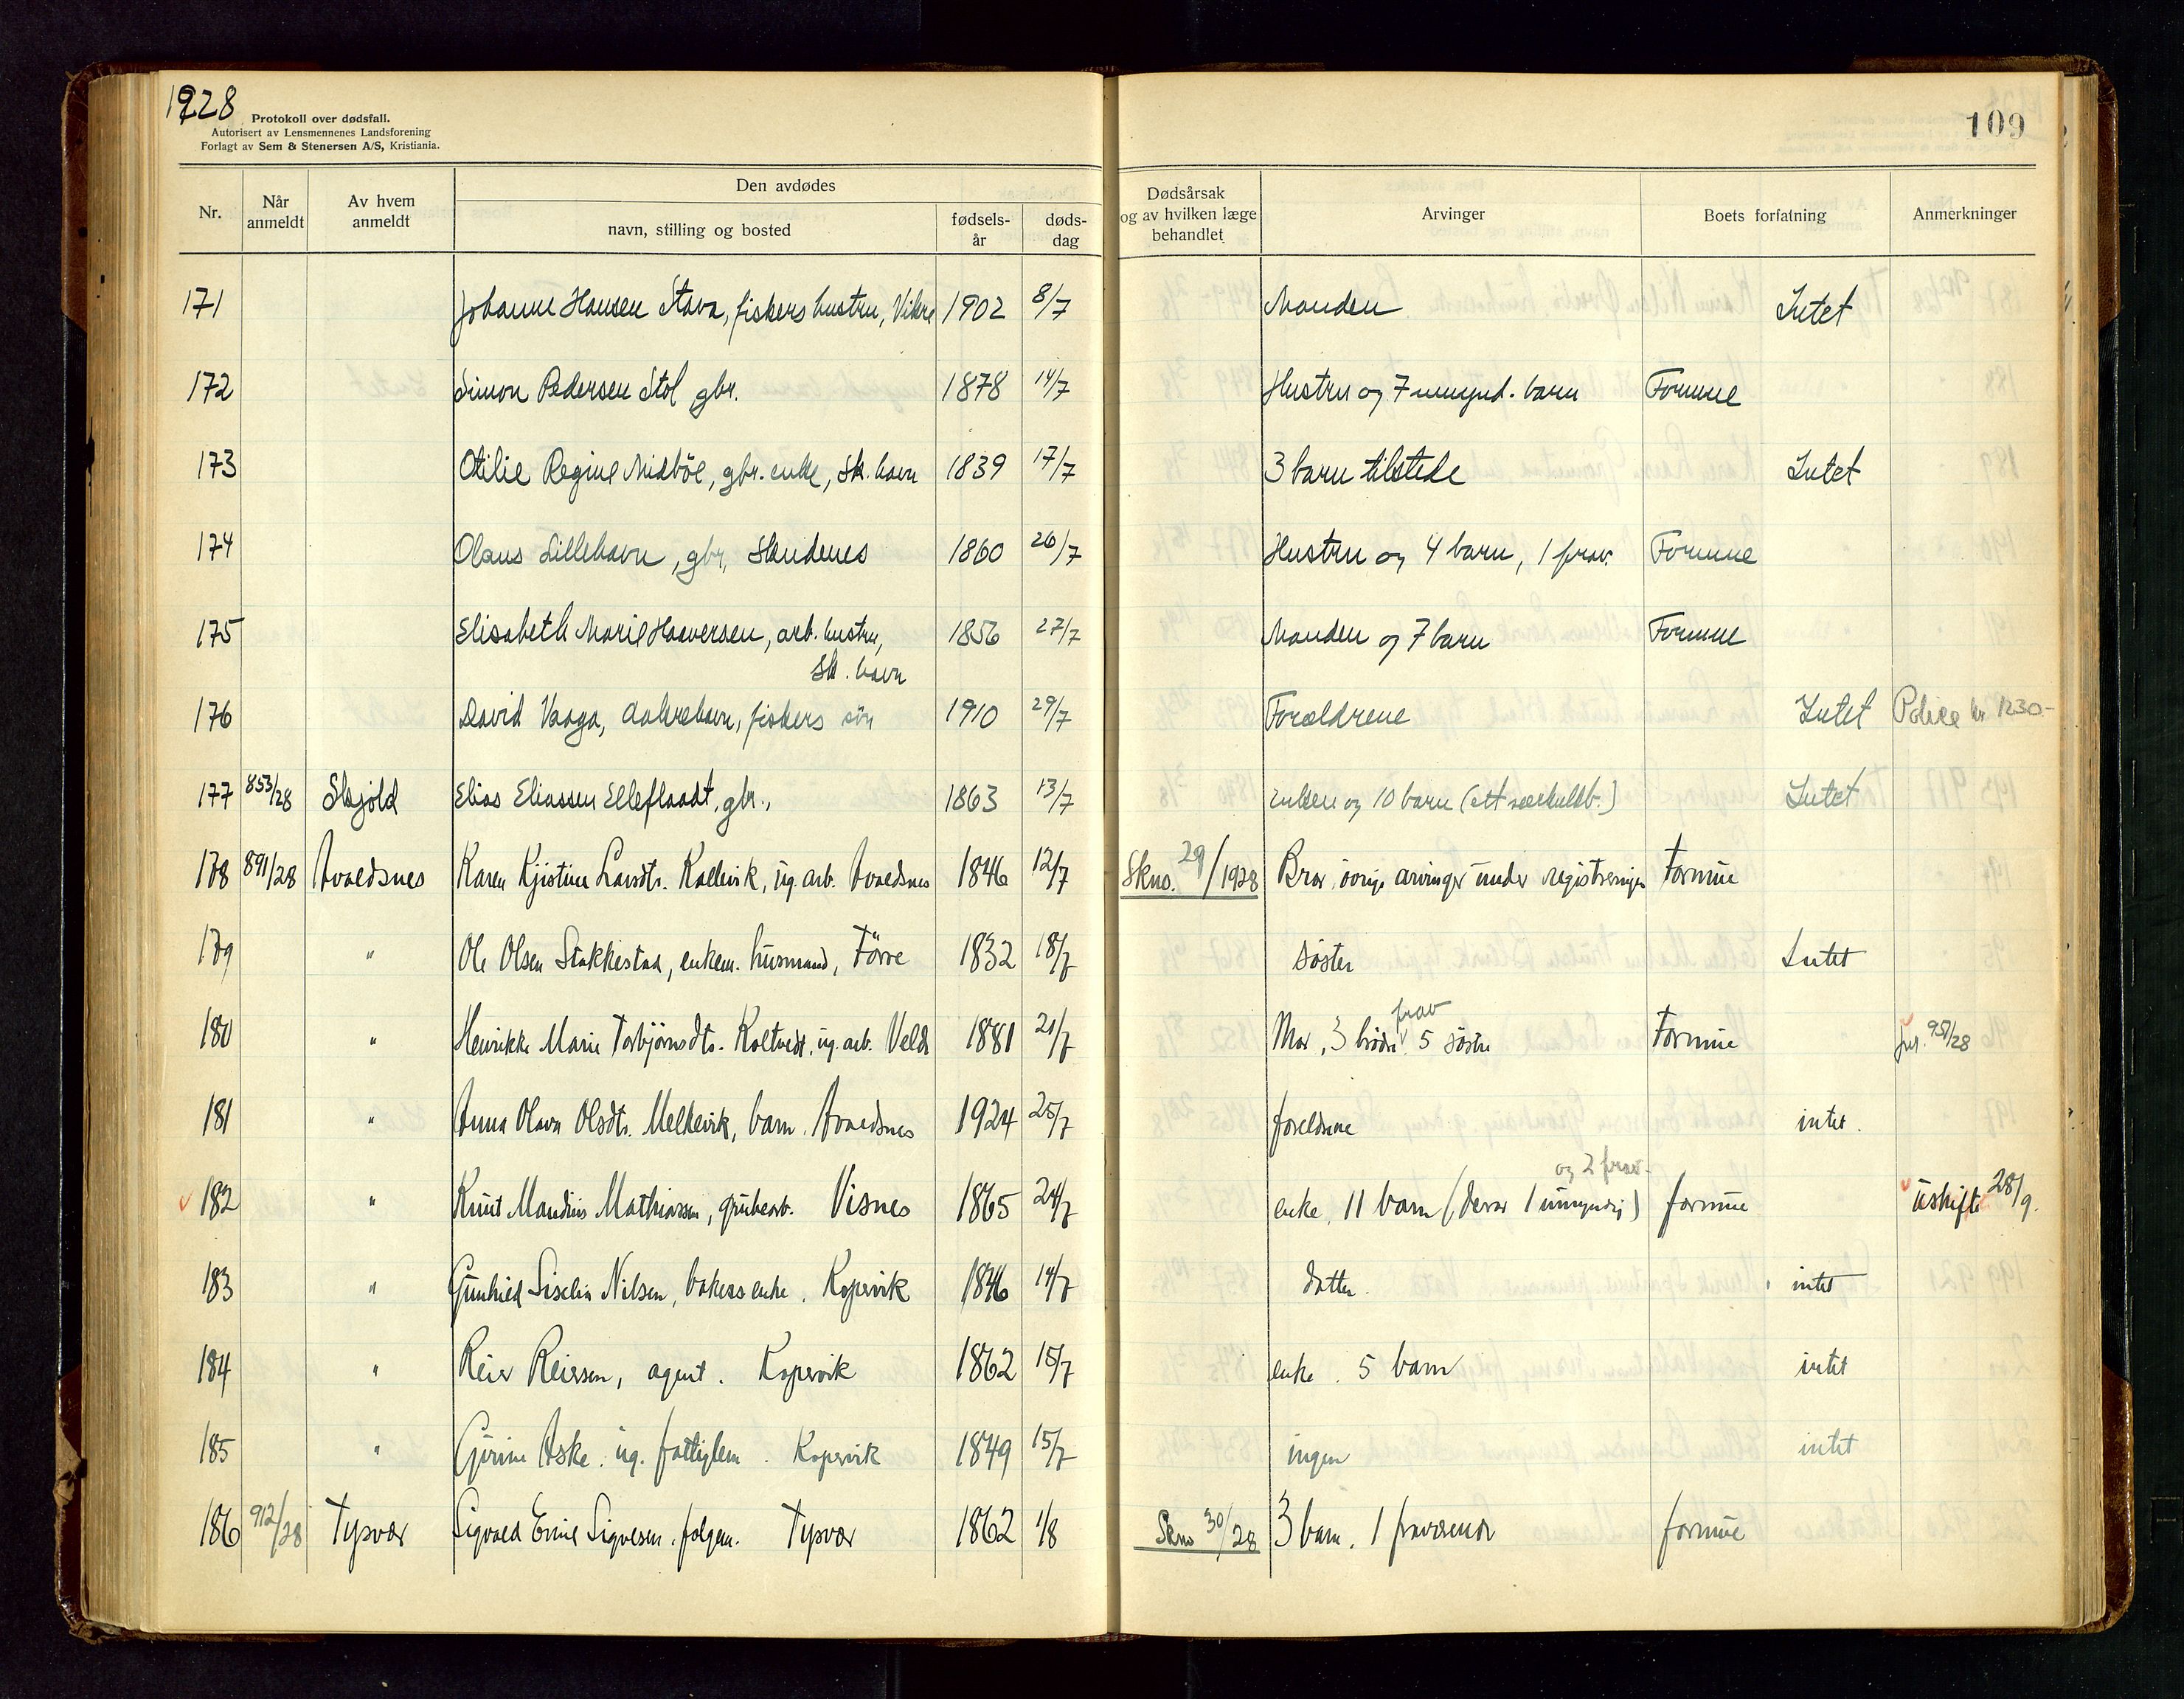 1928
Protokoll over dødsfall.
Autorisert av Lensmennenes Landsforening
Forlagt av Sem & Stenersen A/S, Kristiania.
109
Nr. Når anmeldt Av hvem anmeldt Den avdødes navn, stilling og bosted fødsels-år døds-dag Dødsårsak og av hvilken læge behandlet Arvinger Boets forfatning Anmerkninger
171 Johanne Hansen Stava, fiskers hustru, Vikre 1902 8/7 Manden Intet
172 Simon Pedersen Stol gbr. 1878 14/7 Hustru og 7 umynd. barn Formue
173 Otilie Regine Midböe, gbr. enke, Sk. havn 1839 17/7 3 barn tilstede Intet
174 Olaus Lillehavn, gbr, Skudenes 1860 26/7 Hustru og 4 barn, 1 frav. Formue
175 Elisabeth Marie Haaversen, arb. hustru, 1856 27/7 Manden og 7 barn Formue
Sk. havn
176 David Vaaga, Aakrehavn, fiskers sön 1910 29/7 Forældrene Intet Police kr 1230.-
177 853/28 Skjold Elias Eliassen Elleflaadt, gbr., 1863 13/7 enken og 10 barn (ett særkullb.) Intet
178 891/28 Avaldsnes Karen Kjistine Larsdtr. Kallevik, ug. arb. Avaldsnes 1846 12/7 Skno. 29/1928 Bror, övrige arvinger under registreringen Formue
179 " Ole Olsen Stakkestad, enkem. husmand, Förre 1832 18/7 söster Intet
180 " Henrikke Marie Torbjörnsdtr. Koltvedt, ug. arb. Velde 1881 21/7 Mor, 3 brödre frav 5 söstre Formue Jnr. 951/28
181 " Anna Olava Olsdtr. Melkevik, barn. Avaldsnes 1924 25/7 foreldrene intet.
182 " Knut Mandius Mathiassen, grubearb. Visnes 1865 24/7 enke, 11 barn (derav 1 umyndig) og 2 frav. formue Uskifte 28/9.
183 " Gunhild Siselia Nilsen, bakers enke. Kopervik 1846 14/7 datter. intet
184 " Reier Reiersen, agent. Kopervik 1862 15/7 enke. 5 barn intet
185 " Gjørine Aske. ug. fattiglem. Kopervik 1849 15/7 ingen intet
186 912/28 Tysvær Sigvald Emil Sigvesen, folgem. Tysvær 1862 1/8 Skno 30/28 3 barn. 1 fraværende formue